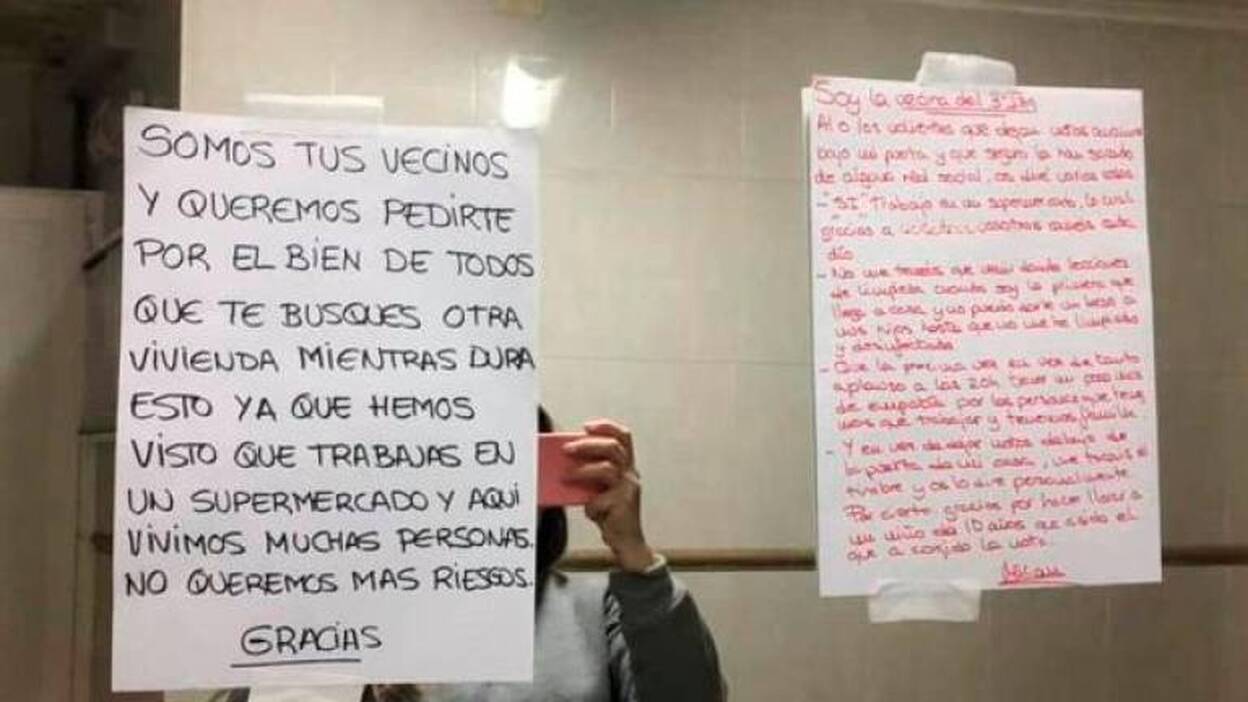 SOMOS TUS VECINOS
Y QUEREMOS PEDIRTE
POR EL BIEN DE TODOS
QUE TE BUSQUES OTRA
VIVIENDA MIENTRAS DURA
ESTO YA QUE HEMOS
VISTO QUE TRABAJAS EN
UN SUPERMERCADO Y AQUI
VIVIMOS MUCHAS PERSONAS.
NO QUEREMOS MAS RIESGOS.
GRACIAS
Soy la vecina del 3º
Al o los valientes que dejan notas
bajo mi puerta y que seguro la han sacado
de alguna red social, os diré varias cosas
- "SI" Trabajo en un supermercado, lo cual
gracias a vosotros
día
- No me tenéis que venir dando lecciones
de limpieza cuando soy la primera que
llega a casa y no puedo darle un beso a
mis hijos hasta que no me he limpiado
y desinfectado
- Que la próxima vez en vez de tanto
aplauso a las 20h tener un poco más
de empatía por las personas que tene
mos que trabajar y tenemos familia
- Y en vez de dejar notas debajo de
la puerta de mi casa, me toquis el
timbre y os lo dire personalmente
Por cierto gracias por hacer llorar a
un niño de 10 años que a sido el
que a cogido la nota.